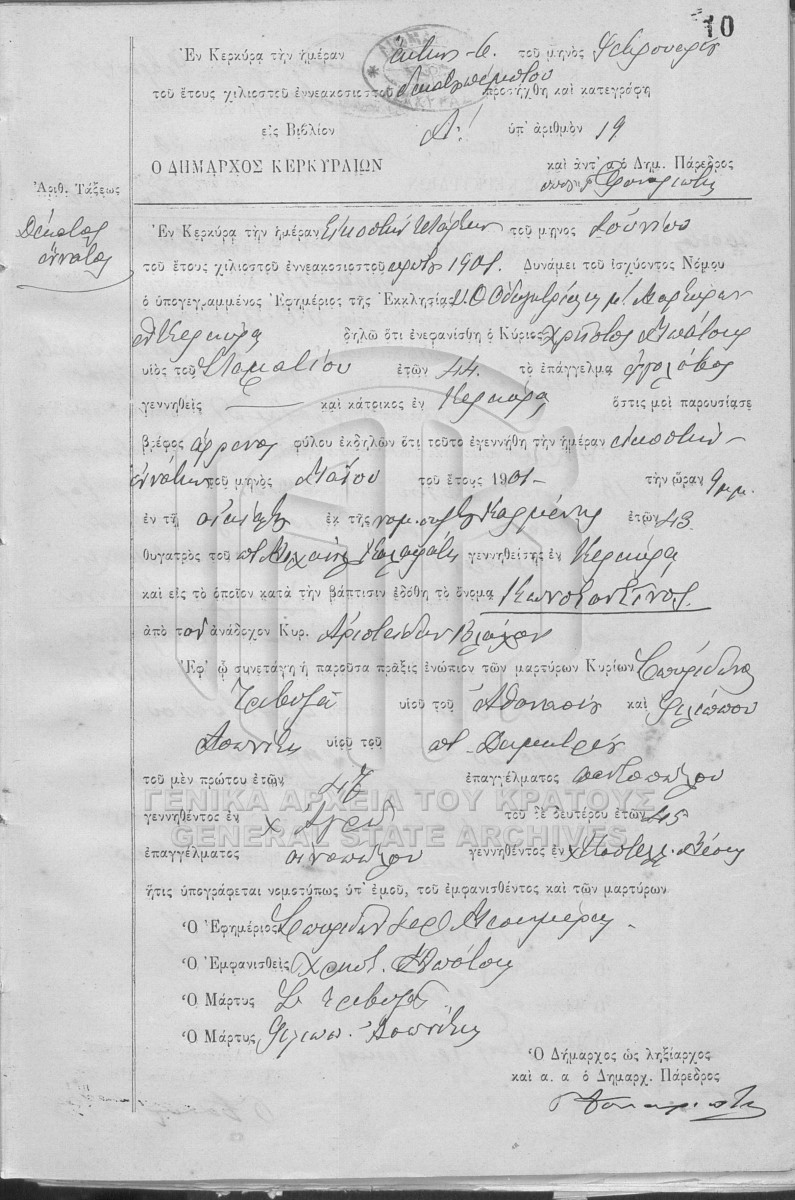 10
Ἐν Κερκύρᾳ τὴν ἡμέραν τοῦ μηνὸς
τοῦ ἔτους χιλιοστοῦ ἐννεακοσιοστοῦ δεκάτου πέμπτου προσήχθη καὶ κατεγράφη
εἰς Βιβλίον Α! ὑπ' ἀριθμὸν 19
Ο ΔΗΜΑΡΧΟΣ ΚΕΡΚΥΡΑΙΩΝ καὶ ἀντ' α ὁ Δημ. Πάρεδρος
Ἀριθ. Τάξεως
Δέκατος
ἔννατος
Ἐν Κερκύρᾳ τὴν ἡμέραν Εἰκοστὴν τετάρτην τοῦ μηνὸς Ἰουνίου
τοῦ ἔτους χιλιοστοῦ ἐννεακοσιοστοῦ πρώτου 1901. Δυνάμει τοῦ ἰσχύοντος Νόμου
ὁ ὑπογεγραμμένος Ἐφημέριος τῆς Ἐκκλησίας
Κερκύρᾳ δηλῶ ὅτι ἐνεφανίσθη ὁ Κύριος Χρῆστος Μπότσης
υἱὸς τοῦ Σταματίου ἐτῶν 44. τὸ ἐπάγγελμα
γεννηθεὶς καὶ κάτοικος ἐν Κερκύρᾳ ὅστις μοὶ παρουσίασε
βρέφος ἄρρενος φύλου ἐκδηλῶν ὅτι τοῦτο ἐγεννήθη τὴν ἡμέραν εἰκοστὴν
ἐννάτην τοῦ μηνὸς Μαΐου τοῦ ἔτους 1901 τὴν ὥραν 9 μ.μ.
ἐν τῇ οἰκίᾳ ἐκ τῆς νομ. συζ. Καρμένης ἐτῶν 43
θυγατρὸς τοῦ ποτ Μιχαὴλ γεννηθείσης ἐν Κερκύρᾳ
καὶ εἰς τὸ ὁποῖον κατὰ τὴν βάπτισιν ἐδόθη τὸ ὄνομα Κωνσταντῖνος.
ἀπὸ τὸν ἀνάδοχον Κυρ. Ἀριστείδην Βλάχον
Ἐφ' ᾧ συνετάγη ἡ παροῦσα πρᾶξις ἐνώπιον τῶν μαρτύρων Κυρίων Σπυρίδωνος
Τριβυζᾶ υἱοῦ τοῦ Ἀθανασίου καὶ Φιλίππου
Ἀσωνίτη υἱοῦ τοῦ ποτ. Δημητρίου
τοῦ μὲν πρώτου ἐτῶν ἐπαγγέλματος παντοπώλου
ΓΕΝΙΚΑ ΑΡΧΕΙΑ ΤΟΥ ΚΡΑΤΟΥΣ
γεννηθέντος ἐν χ. Ἀγροῦ τοῦ δὲ δευτέρου ἐτῶν 45
GENERAL STATE ARCHIVES
ἐπαγγέλματος οἰνοπώλου γεννηθέντος ἐν
ἥτις ὑπογράφεται νομοτύπως ὑπ' ἐμοῦ, τοῦ ἐμφανισθέντος καὶ τῶν μαρτύρων
Ὁ Ἐφημέριος Σπυρίδων
Ὁ Ἐμφανισθεὶς Χρηστ. Μπότσης
Ὁ Μάρτυς Σ. Τριβυζᾶς
Ὁ Μάρτυς Φιλιππ. Ἀσωνίτης
Ὁ Δήμαρχος ὡς ληξίαρχος
καὶ α. α ὁ Δημαρχ. Πάρεδρος